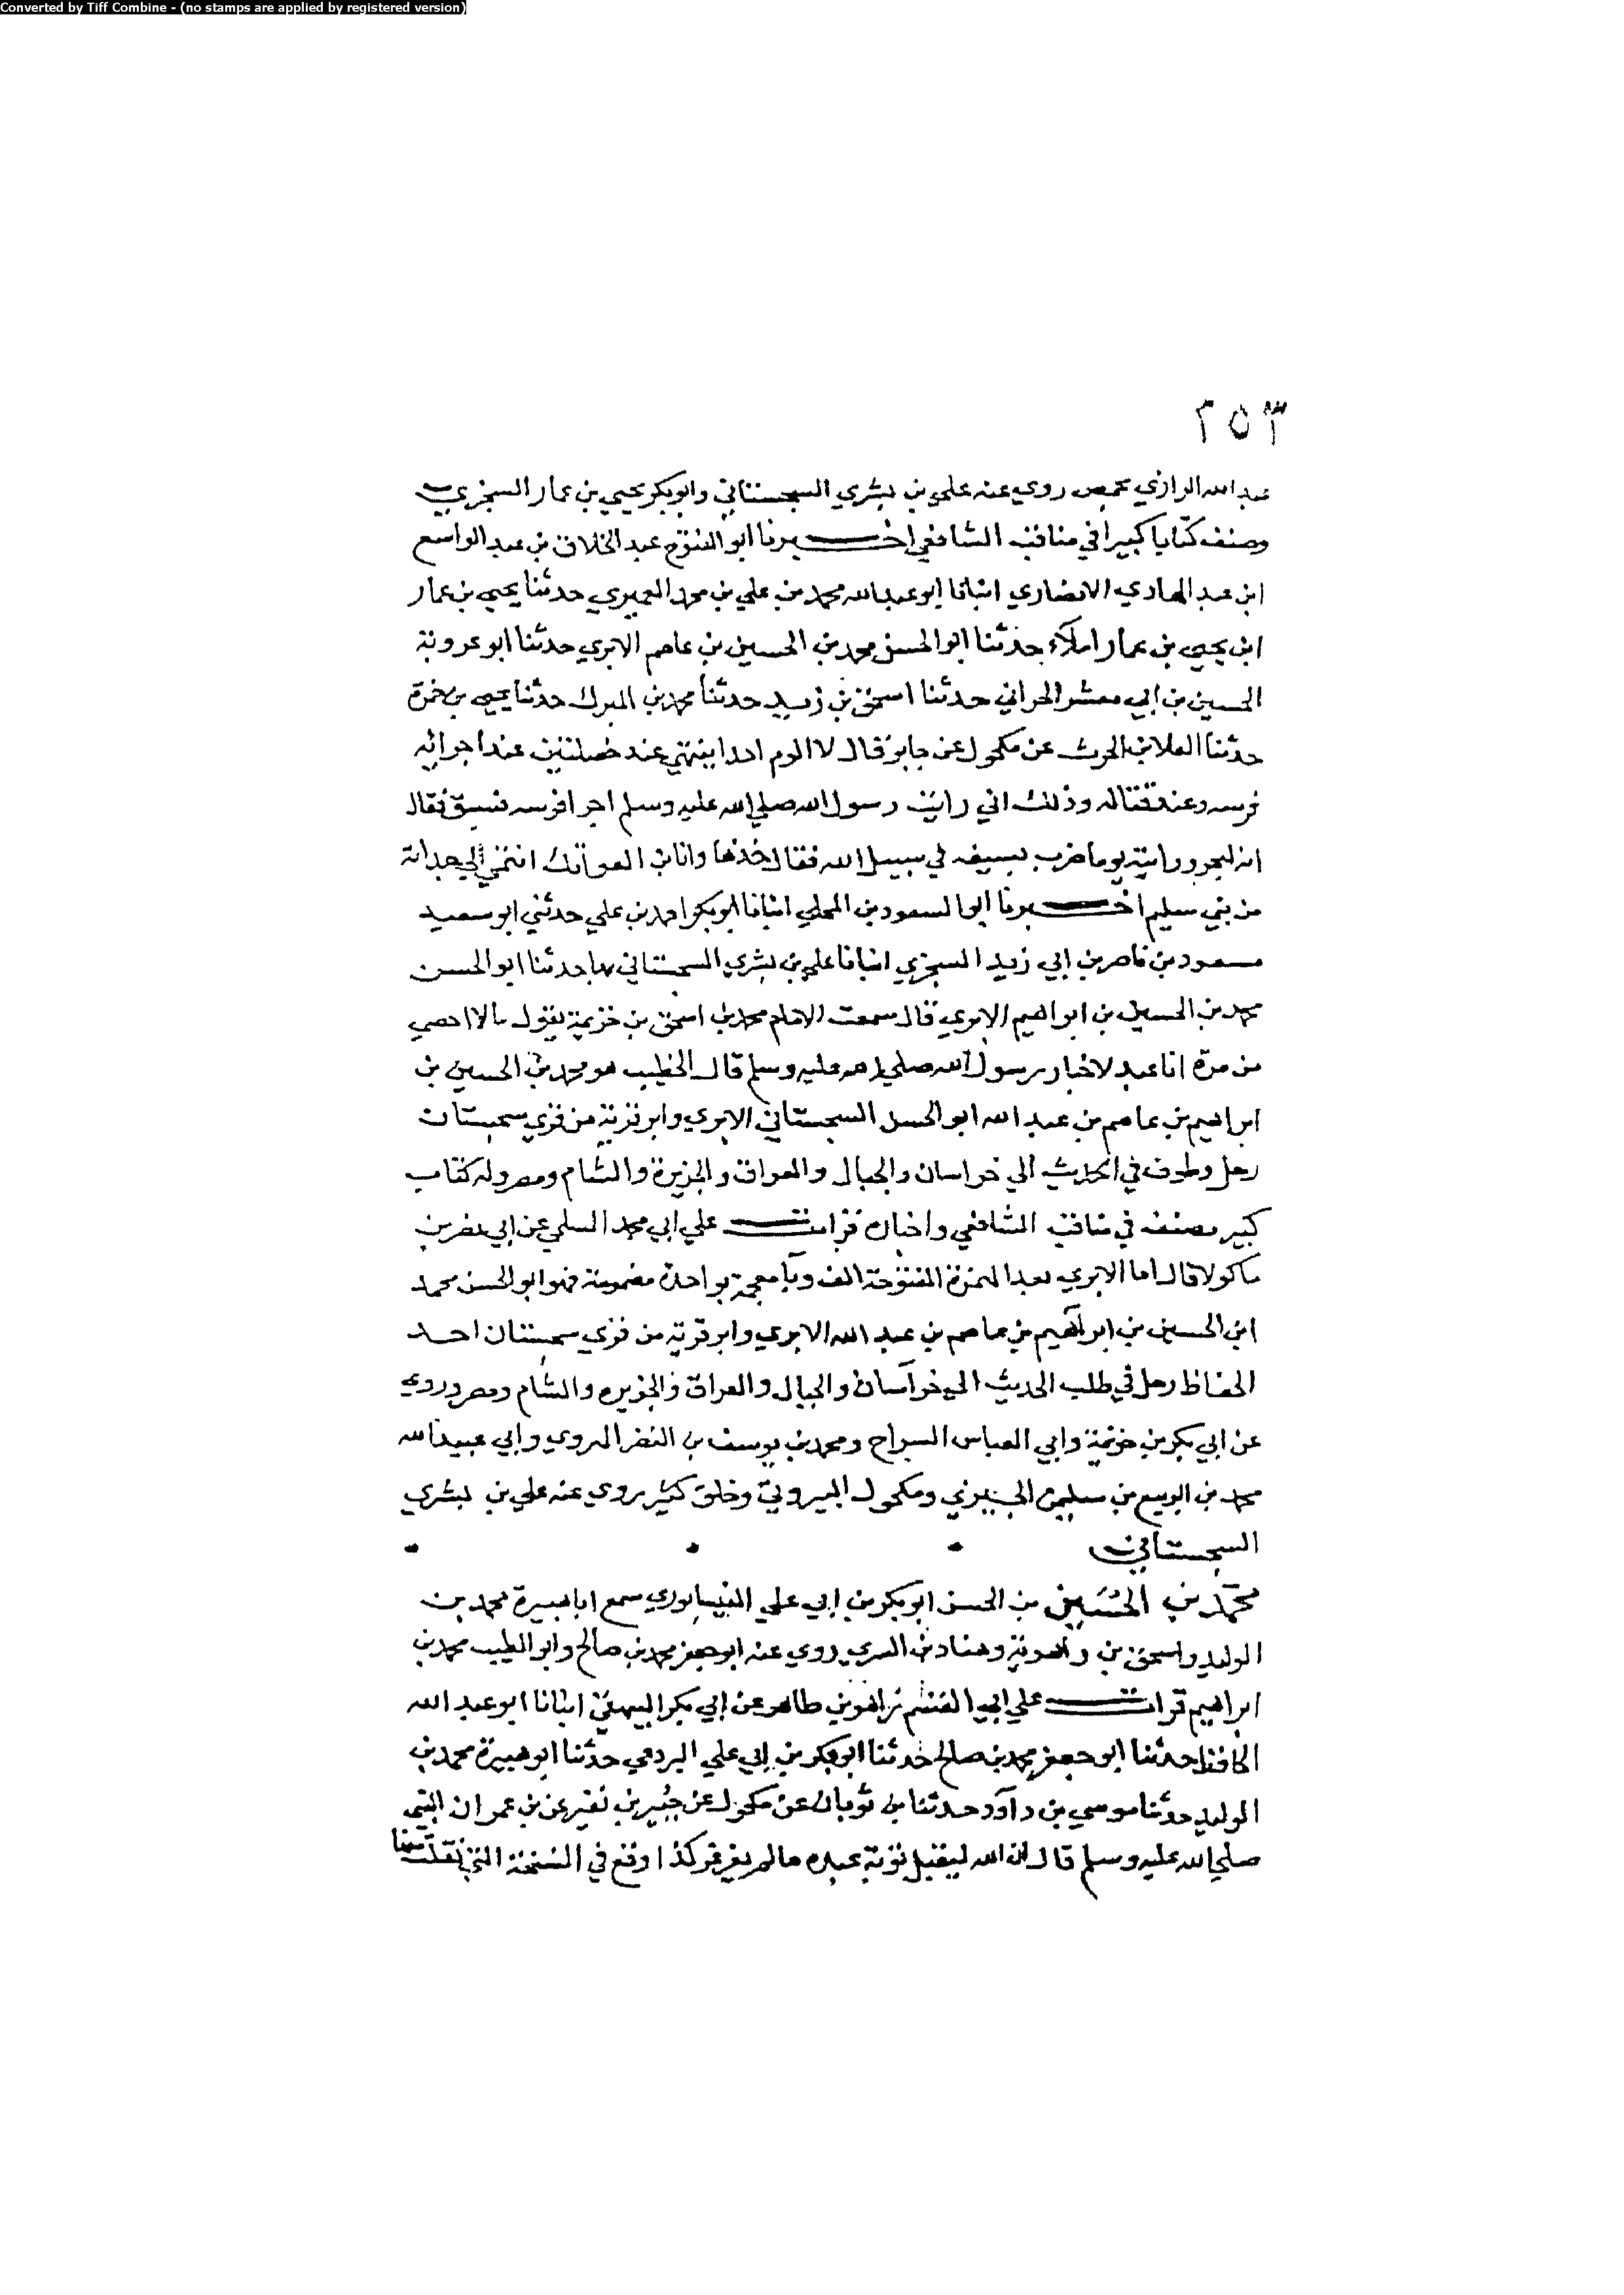 Converted by Tiff Combine - (no stamps are applied by registered version)
٢٥٣
عبد الله الرازي بحمص روي عنه علي بن بشري السجستاني وابو بكر يحيي بن عمار السجزي
وصنف كتابا كبيرا في مناقب الشافعي اخبرنا ابو الفتوح عبد الخلاق بن عبد الواسع
ابن عبد الهادي الانصاري انبانا ابو عبد الله محمد بن علي بن محمد العميري حدثنا يحيي بن عمار
ابن يحيي بن عمار املآء حدثنا ابو الحسن محمد بن الحسين بن عاصم الابري حدثنا ابو عروبة
الحسين بن ابي معشر الحراني حدثنا اسحق بن زيد حدثنا محمد بن المبرك حدثنا يحيي بن حمزة
حدثنا العلا بن الحرث عن مكحول عن جابر قال لا الوم احدا ينتمي عند خصلتين عند اجرائه
فرسه وعند قتاله وذلك اني رايت رسول الله صلي الله عليه وسلم اجرا فرسه فسبق فقال
انه لبحر ورايته يوما ضرب بسيفه في سبيل الله فقال خذها وانا بن العواتك انتمي الي جداته
من بني سليم اخبرنا ابو السعود بن المجلي انبانا ابو بكر احمد بن علي حدثني ابو سعيد
مسعود بن ناصر بن ابي زيد السجزي انبانا علي بن بشري السجستاني بها حدثنا ابو الحسن
محمد بن الحسين بن ابراهيم الابري قال سمعت الامام محمد بن اسحق بن خزيمة يقول مالا احصي
من مرة انا عبد لاخبار رسول الله صلي الله عليه وسلم قال الخطيب هو محمد بن الحسين بن
ابراهيم بن عاصم بن عبد الله ابو الحسن السجستاني الابري وابر قرية من قري سجستان
رحل وطوف في الحديث الي خراسان والجبال والعراق والجزيرة والشام ومصر وله كتاب
كبير مصنف في مناقب الشافعي واخباره قرات علي ابي محمد السلمي عن ابي نصر بن
ماكولا قال اما الابري بعد الهمزة المفتوحة الف وبا معجمة بواحدة مضمومة فهو ابو الحسن محمد
ابن الحسين بن ابراهيم بن عاصم بن عبد الله الابري وابر قرية من قري سجستان احد
الحفاظ رحل في طلب الحديث الي خراسان والجبال والعراق والجزيره والشام ومصر وروي
عن ابي بكر بن خزيمة وابي العباس السراج ومحمد بن يوسف بن النضر الهروي وابي عبيد الله
محمد بن الربيع بن سليمن الجيزي ومكحول البيروتي وخلق كثير روي عنه علي بن بشري
السجستاني
محمد بن الحسين بن الحسن ابو بكر بن ابي علي النيسابوري سمع ابا هبيرة محمد بن
الوليد واسحق بن راهوية وهناد بن السري روي عنه ابو جعفر محمد بن صالح وابو الطيب محمد بن
ابراهيم قرات علي ابي القسم زاهر بن طاهر عن ابي بكر البيهقي انبانا ابو عبد الله
الحافظ حدثنا ابو جعفر محمد بن صالح حدثنا ابو بكر بن ابي علي البردعي حدثنا ابو هبيرة محمد بن
الوليد حدثنا موسي بن داود حدثنا بن ثوبان عن مكحول عن جبير بن نفير عن بن عمر ان النبي
صلي الله عليه وسلم قال ان الله ليقبل توبة عبده ما لم يغرغر كذا وقع في النسخة التي نقلت منها